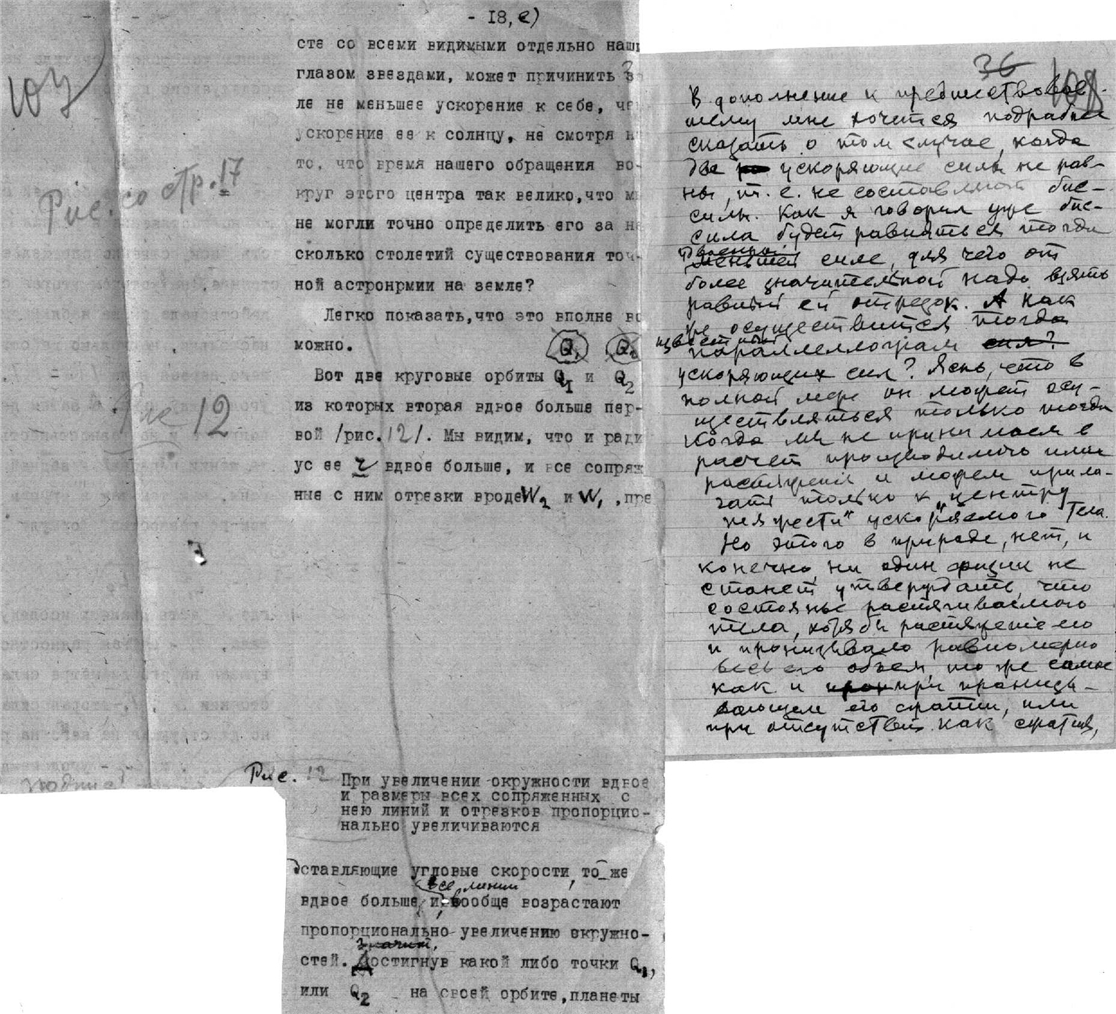 - 18, е)
сте со всеми видимыми отдельно наши
глазом звездами, может причинить з
ле не меньшее ускорение к себе, че
ускорение ее к солнцу, не смотря н
то, что время нашего обращения во-
круг этого центра так велико,что м
не могли точно определить его за не
сколько столетий существования точ
ной астронрмии на земле?
Легко показать,что это вполне во
можно.
Q₁ Q₂
Вот две круговые орбиты Q₁ и Q₂
из которых вторая вдвое больше пер-
вой /рис. 12/. Мы видим, что и ради
ус ее r вдвое больше, и все сопряж
ные с ним отрезки вроде W₂ и W₁ ,пре
107
Рис. со стр. 17
Рис 12
Рис. 12
При увеличении окружности вдвое
и размеры всех сопряженных с
нею линий и отрезков пропорцио-
нально увеличиваются
дставляющие угловые скорости, то же
все линии
вдвое больше, и вообще возрастают
пропорционально увеличению окружно-
значит,
стей. Достигнув какой либо точки Q₁,
или Q₂ на своей орбите,планеты
36
108
В дополнение к предшествовав-
шему мне хочется подробнее
сказать о том случае, когда
две ускоряющие силы не рав-
ны, т. е. не составляют бис-
силы. Как я говорил уже бис-
сила будет равняться тогда
меньшей силе, для чего от
более значительной надо взять
равный ей отрезок. А как
же осуществится тогда
известный
параллеллограм сил?
ускоряющих сил? Ясно, что в
полной мере он может осу-
ществляться только тогда
когда мы не принимаем в
расчет производимого ими
растяжения и можем прила-
гать только к „центру
тяжести“ ускоряемого тела.
Но этого в природе, нет, и
конечно ни один физик не
станет утверждать, что
состоянье растягиваемого
тела, хотя бы растяжение его
и пронизывало равномерно
весь его объем то же самое
как и при пронизы-
вающем его сжатии, или
при отсутствии как сжатия,